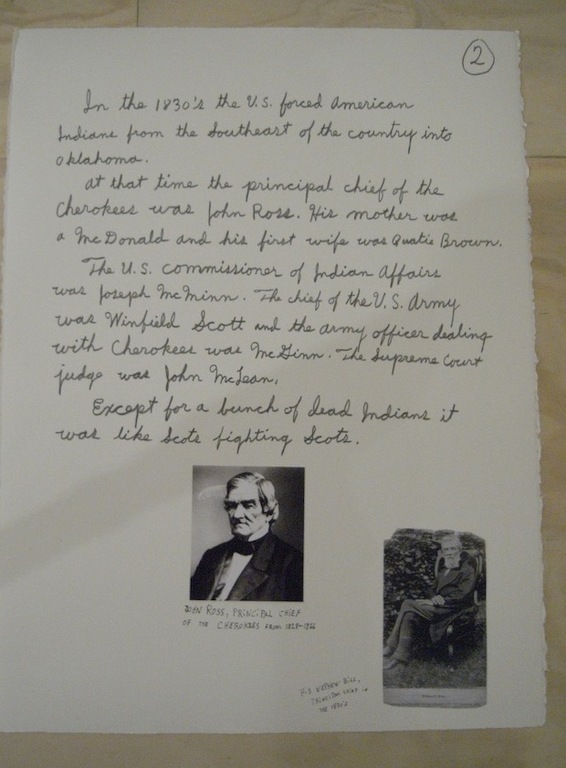 2
In the 1830's the U.S. forced American
Indians from the Southeast of the country into
Oklahoma.
At that time the principal chief of the
Cherokees was John Ross. His mother was
a McDonald and his first wife was Quatie Brown.
The U.S. commissioner of Indian Affairs
was Joseph McMinn. The chief of the U.S. Army
was Winfield Scott and the army officer dealing
with Cherokees was McGinn. The Supreme Court
judge was John McLean.
Except for a bunch of dead Indians it
was like Scots fighting Scots.
JOHN ROSS, PRINCIPAL CHIEF
OF THE CHEROKEES FROM 1828-1866
NEPHEW BILL,
PRINCIPAL CHIEF IN
THE